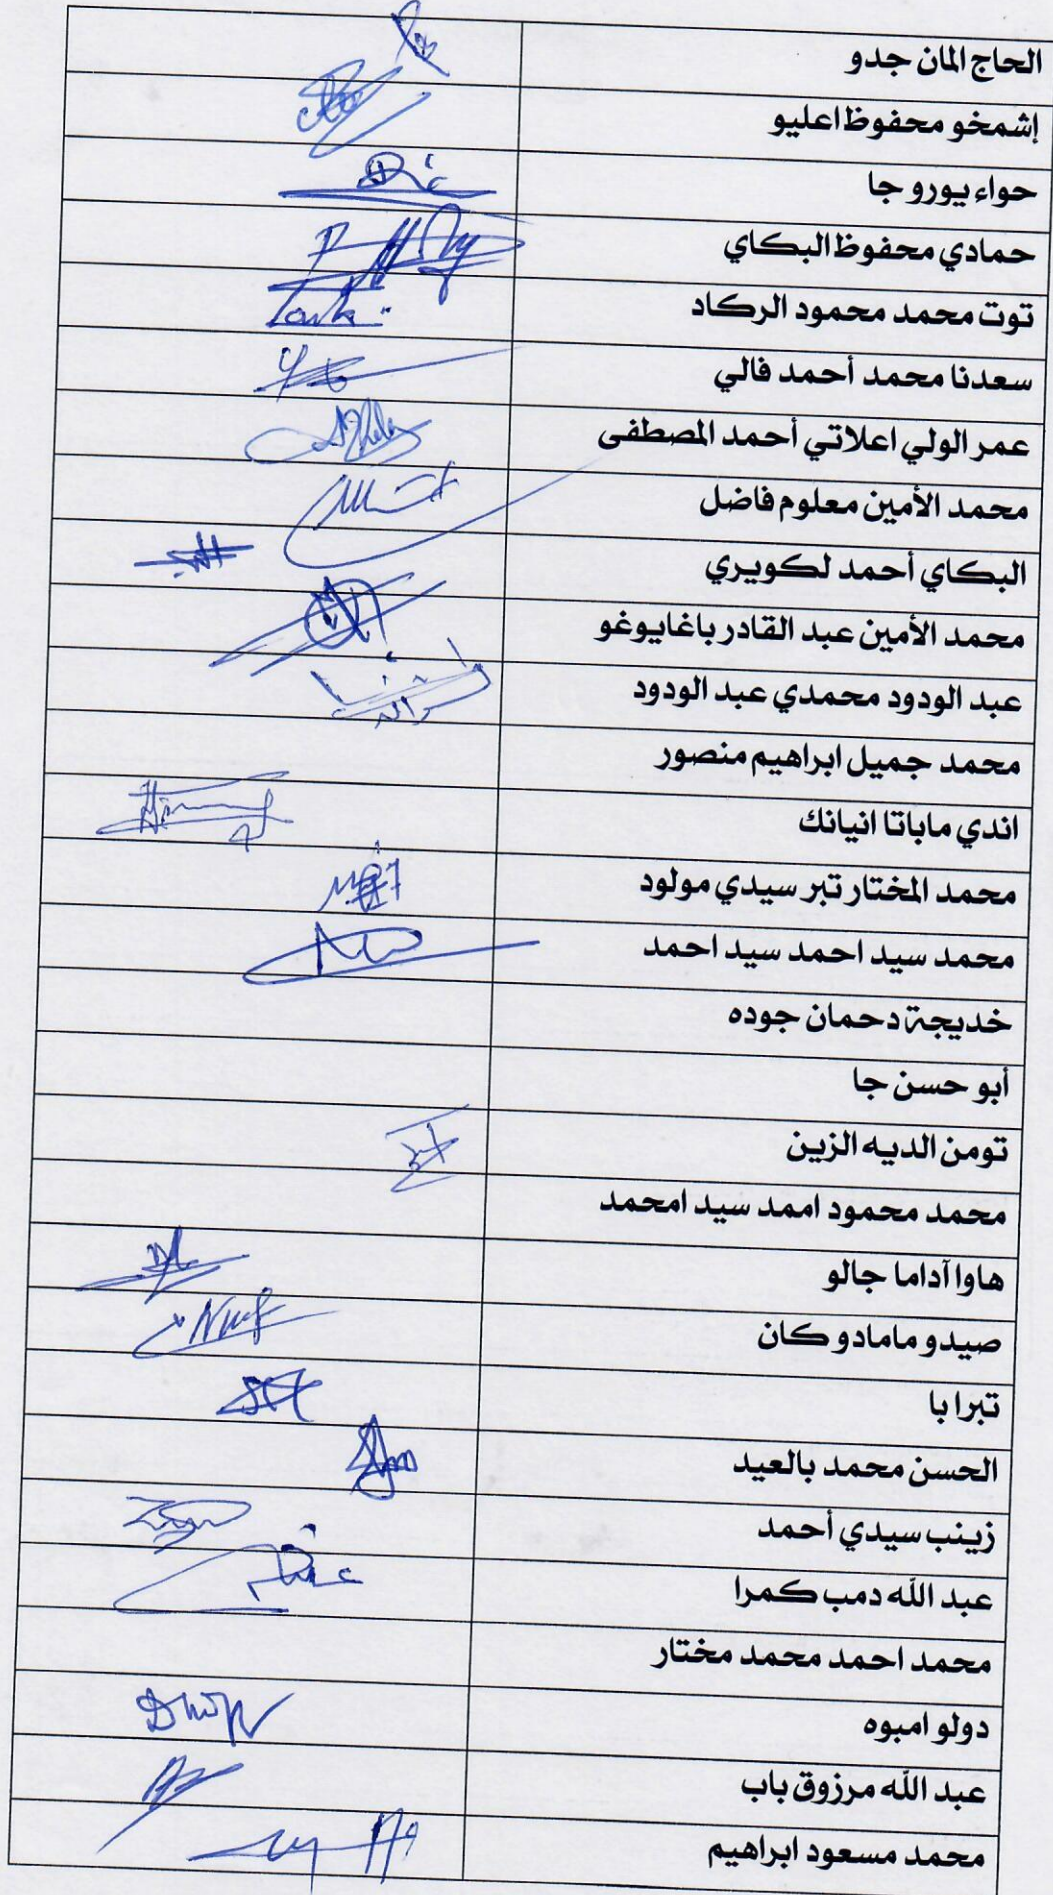 الحاج المان جدو
إشمخو محفوظ اعليو
حواء يورو جا
حمادي محفوظ البكاي
توت محمد محمود الركاد
سعدنا محمد أحمد فالي
عمر الولي اعلاتي أحمد المصطفى
محمد الأمين معلوم فاضل
البكاي أحمد لكويري
محمد الأمين عبد القادر باغايوغو
عبد الودود محمدي عبد الودود
محمد جميل ابراهيم منصور
اندي ماباتا انيانك
محمد المختار تبر سيدي مولود
محمد سيد احمد سيد احمد
خديجة دحمان جوده
أبو حسن جا
تومن الديه الزين
محمد محمود اممد سيد امحمد
هاوا آداما جالو
صيدو مامادو كان
تبرا با
الحسن محمد بالعيد
زينب سيدي أحمد
عبد الله دمب كمرا
محمد احمد محمد مختار
دولو امبوه
عبد الله مرزوق باب
محمد مسعود ابراهيم